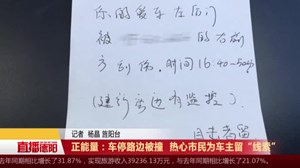 你的爱车左后门
被
的右前
方刮伤，时间16:40-4:50
(建行旁边有监控)
目击者留
记者 杨晶 旌阳台
直播德阳
正能量：车停路边被撞 热心市民为车主留“线索”
去年同期相比增长了31.87%，实现旅游收入39236.13万元，与去年同期相比增长了21.07%。